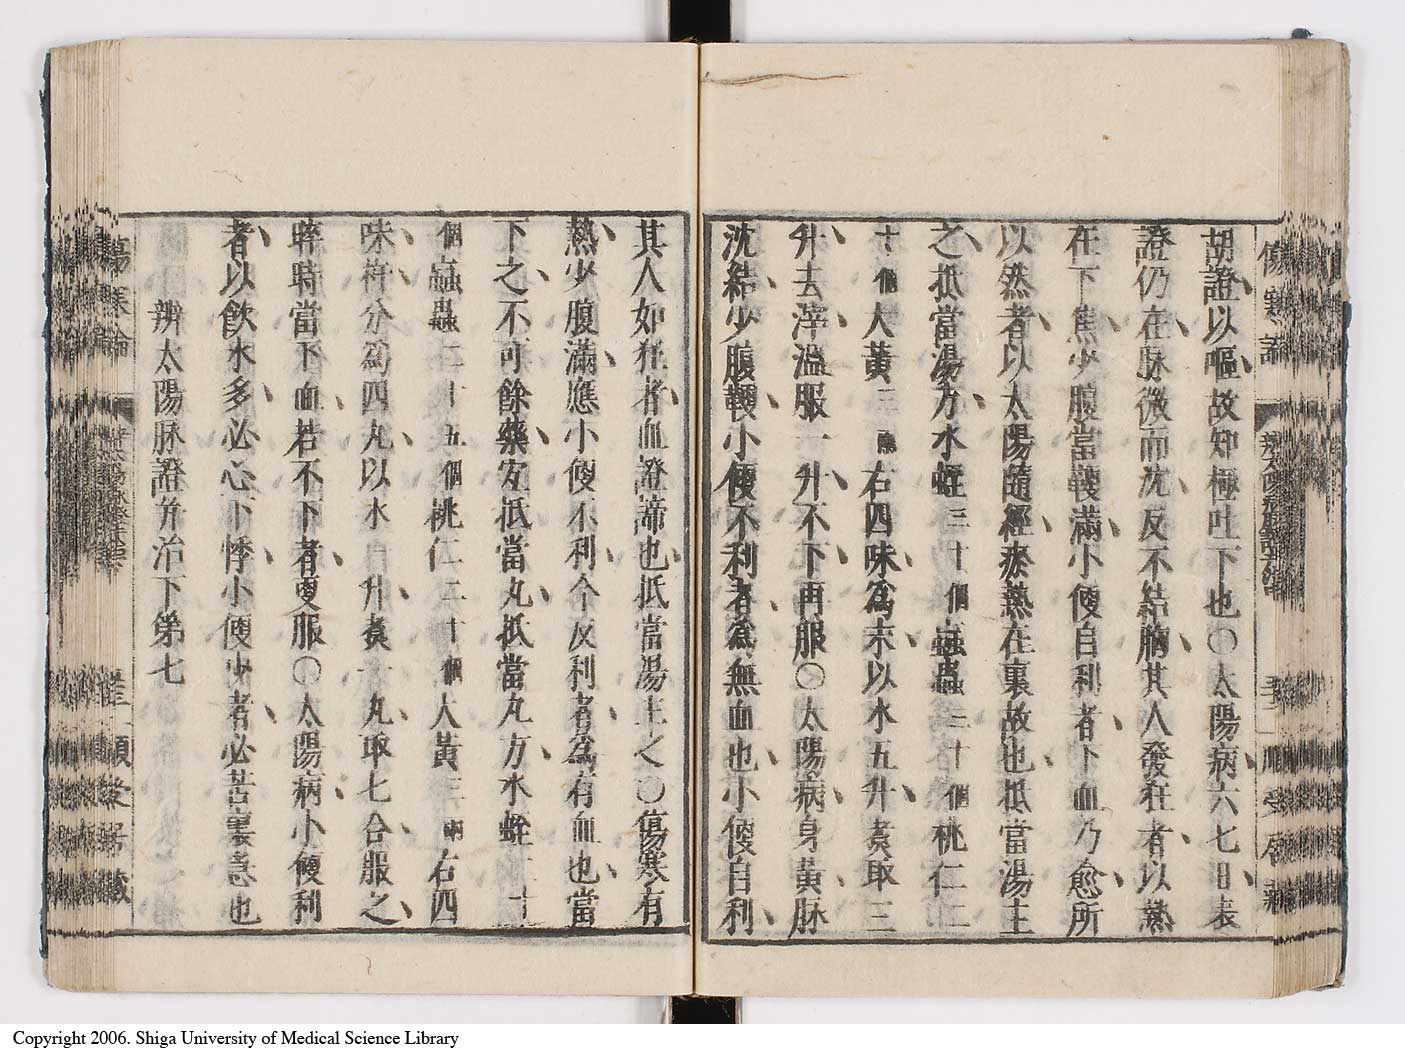 胡證以嘔故知極吐下也〇太陽病六七日表
證仍在脉微而沈反不結胸其人發狂者以熱
在下焦少腹當鞕滿小便自利者下血乃愈所
以然者以太陽隨經瘀熱在裏故也抵當湯主
之抵當湯方水蛭三十個蝱蟲三十個桃仁二
十個大黃三兩右四味爲末以水五升煮取三
升去滓溫服一升不下再服〇太陽病身黃脉
沈結少腹鞕小便不利者爲無血也小便自利
其人如狂者血證諦也抵當湯主之〇傷寒有
熱少腹滿應小便不利今反利者爲有血也當
下之不可餘藥宜抵當丸抵當丸方水蛭二十
個蝱蟲二十五個桃仁二十個大黃三兩右四
味杵分爲四丸以水一升煮一丸取七合服之
晬時當下血若不下者更服〇太陽病小便利
者以飮水多必心下悸小便少者必苦裏急也
辨太陽脉證并治下第七
傷寒論
Copyright 2006. Shiga University of Medical Science Library